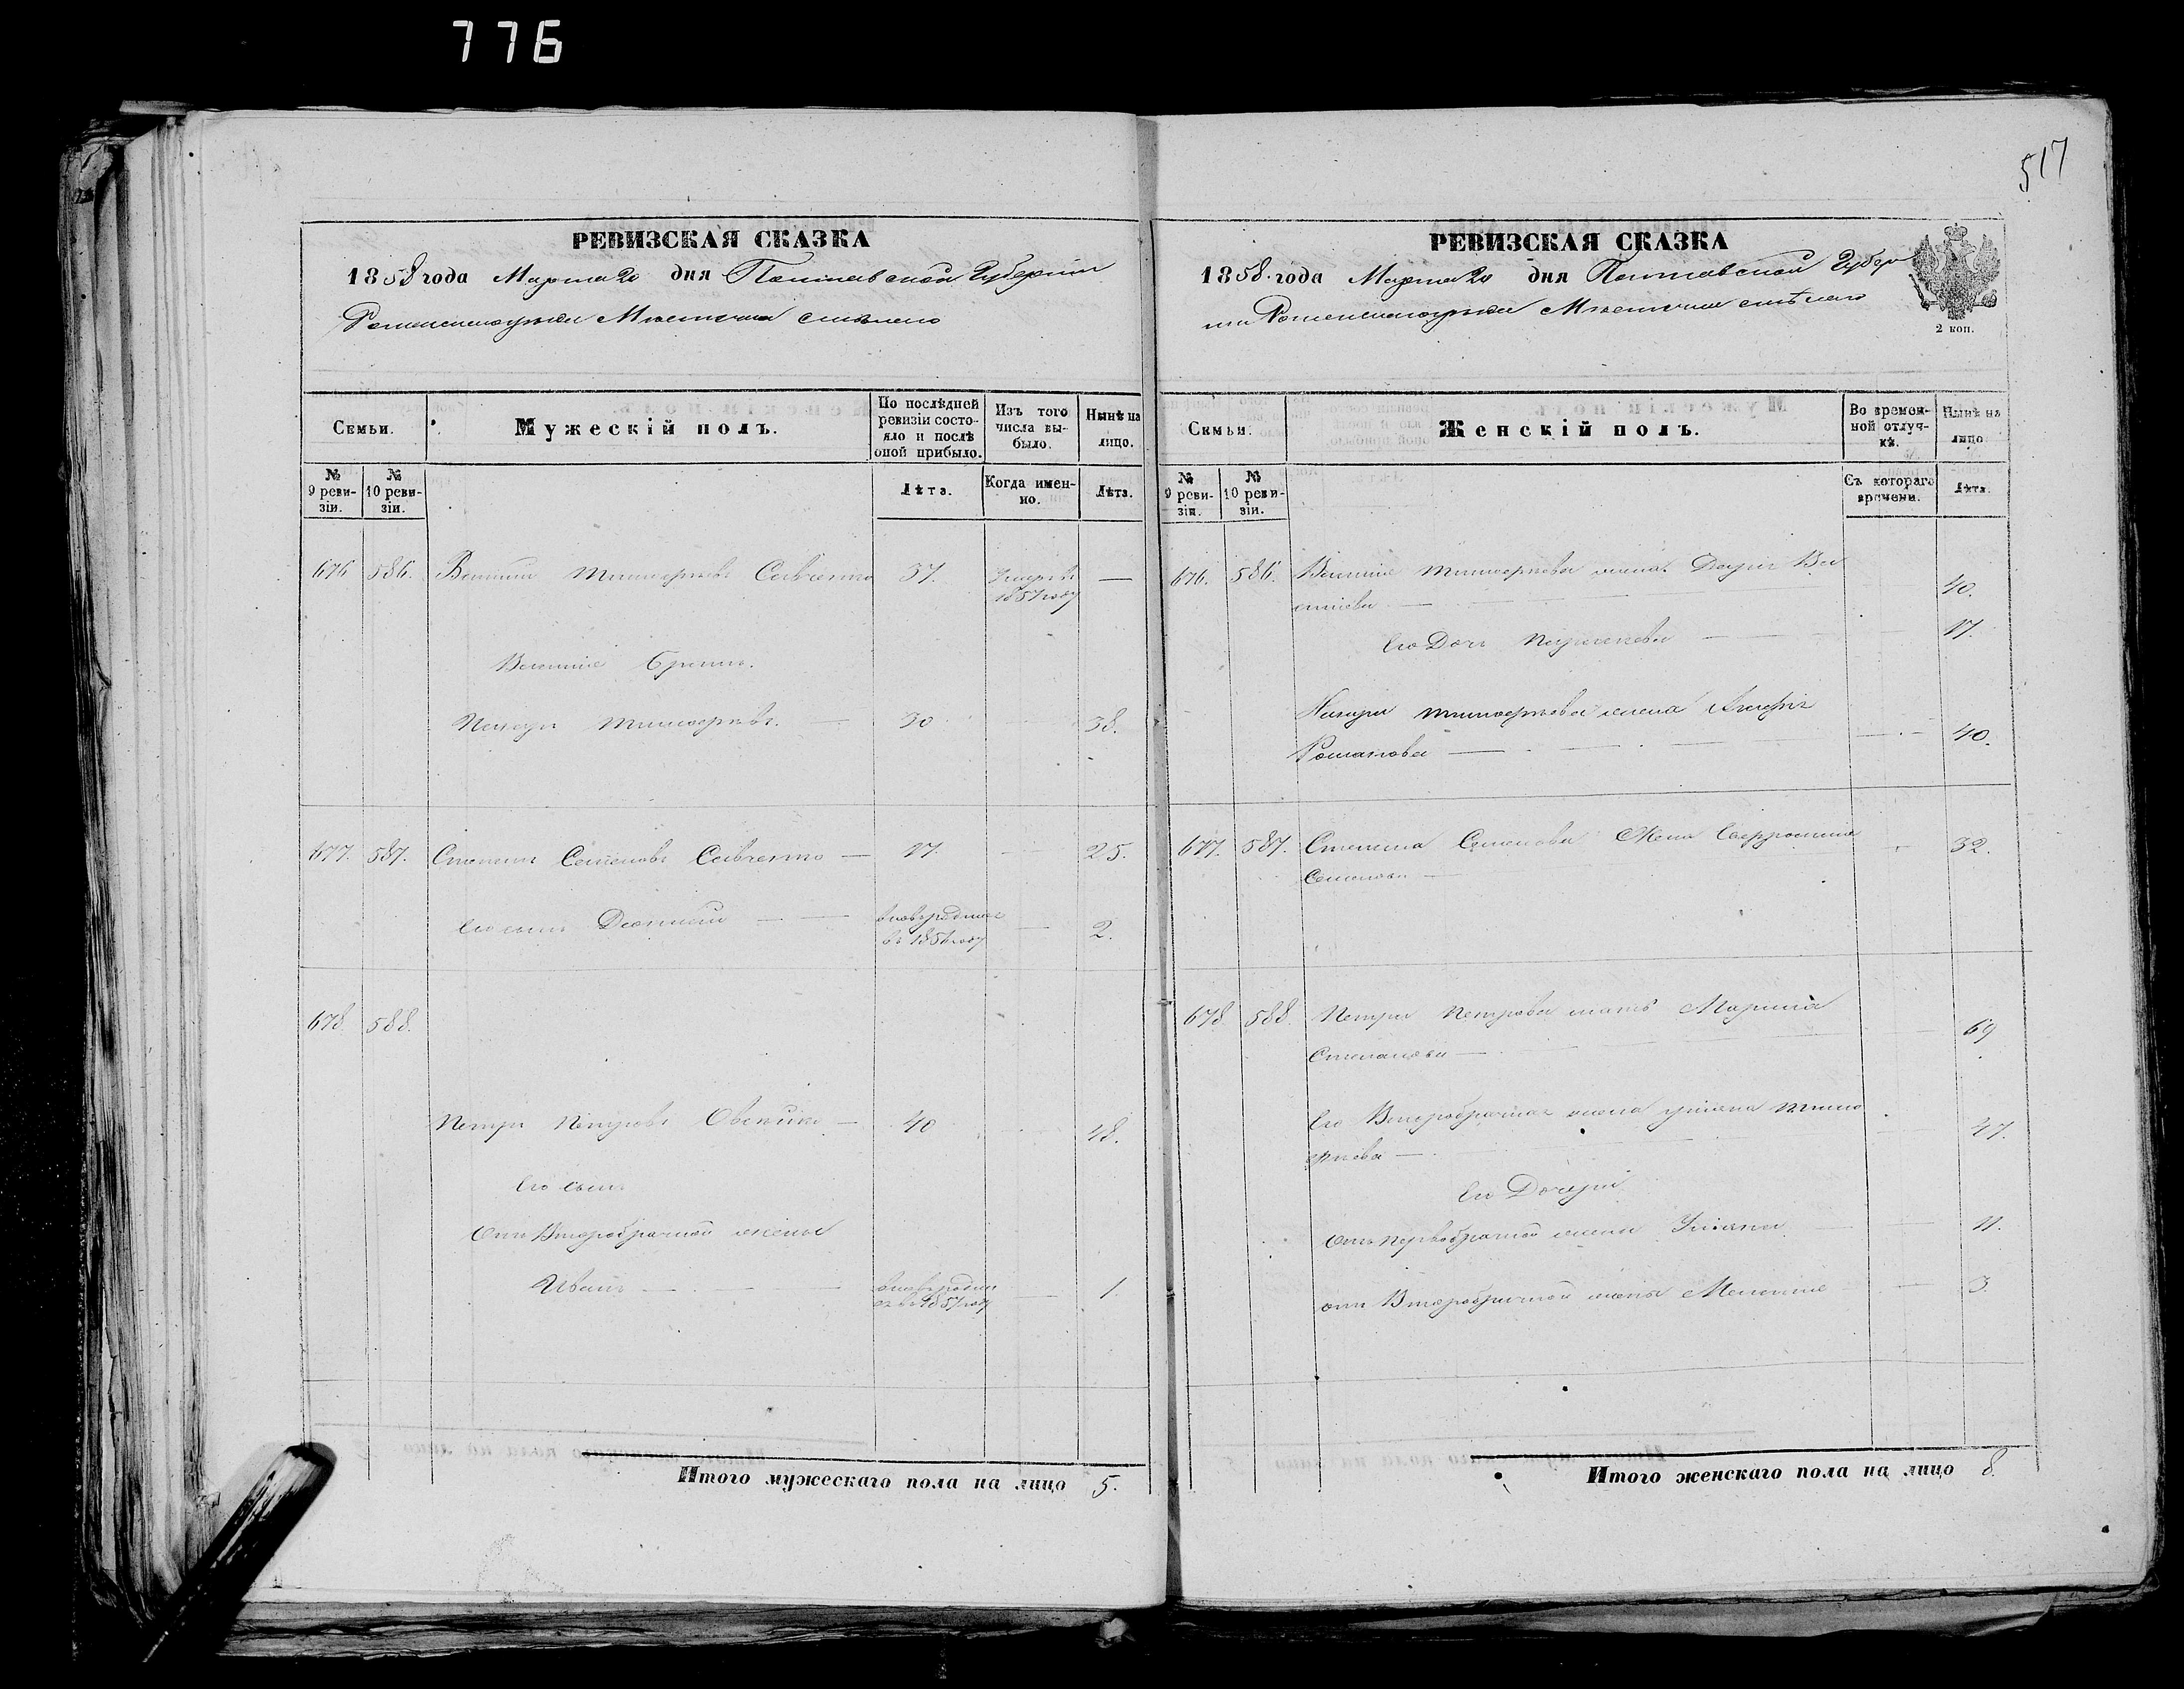 776
517
РЕВИЗСКАЯ СКАЗКА
1858 года Марта 20 дня Полтавской Губернии
Роменского уезда Местечка Смелого
Семьи.
Мужескій полъ.
По послѣдней ревизіи состояло и послѣ оной прибыло.
Изъ того числа выбыло.
Нынѣ на лицо.
№ 9 ревизіи.
№ 10 ревизіи.
Лѣта.
Когда именно.
Лѣта.
676 586. Тимофеевъ Савченко 37. Умеръ 1857 году —
братъ.
Назаръ Тимофеевъ. — 30 38.
677. 587. Степанъ Семеновъ Савченко — 17. 25.
Его сынъ — — 2.
678 588.
Петръ Петровъ — 40 48.
Его сынъ
отъ Второбрачной жены
Иванъ — — — 1.
Итого мужескаго пола на лицо 5.
РЕВИЗСКАЯ СКАЗКА
1858 года Марта 20 дня Полтавской Губер
нии Роменского уезда Местечка Смѣлого
2 коп.
Семьи.
Женскій полъ.
Во временной отлучкѣ.
Нынѣ на лицо
№ 9 ревизіи.
№ 10 ревизіи.
Съ котораго времени.
Лѣта.
676. 586. Тимофеева жена Дарья Ва
сильева — 40.
Его Дочь — 17.
Назара Тимофеева жена
Романова — 40.
677. 587. Степана Семенова Жена 32.
Семенова —
678 588. Петра Петрова мать Марина
Степанова — 69
Его Второбрачная жена Ульяна Тимо
феева — 47.
Его Дочери
отъ первобрачной жены Ульяна — 11.
отъ Второбрачной жены 3.
Итого женскаго пола на лицо 8.